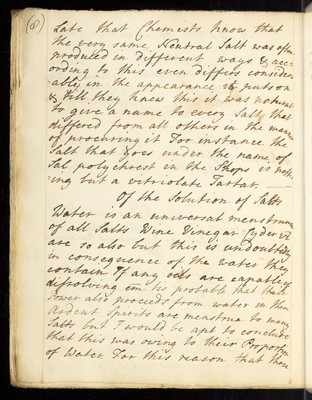 (8)
Late that Chemists know that
the very same Neutral Salt was often
produced in different ways & acc-
ording to this even differs consider-
ably in the appearance it puts on
& till they knew this it was natural
to give a name to every Salt that
differed from all others in the manner
of procuring it For instance the
Salt that goes under the name of
Sal polychrest in the Shops is noth-
ing but a vitriolate Tartar.
Of the Solution of Salts
Water is an universal menstruum
of all Salts Wine Vinegar Cyder &c
are so also but this is undoubtedly
in consequence of the water they
contain If any oils are capable of
dissolving em tis probable that their
Power also proceeds from water in them
Ardent Spirits are menstrua to many
Salts but I would be apt to conclude
that this was owing to their Proportion
of Water For this reason that those